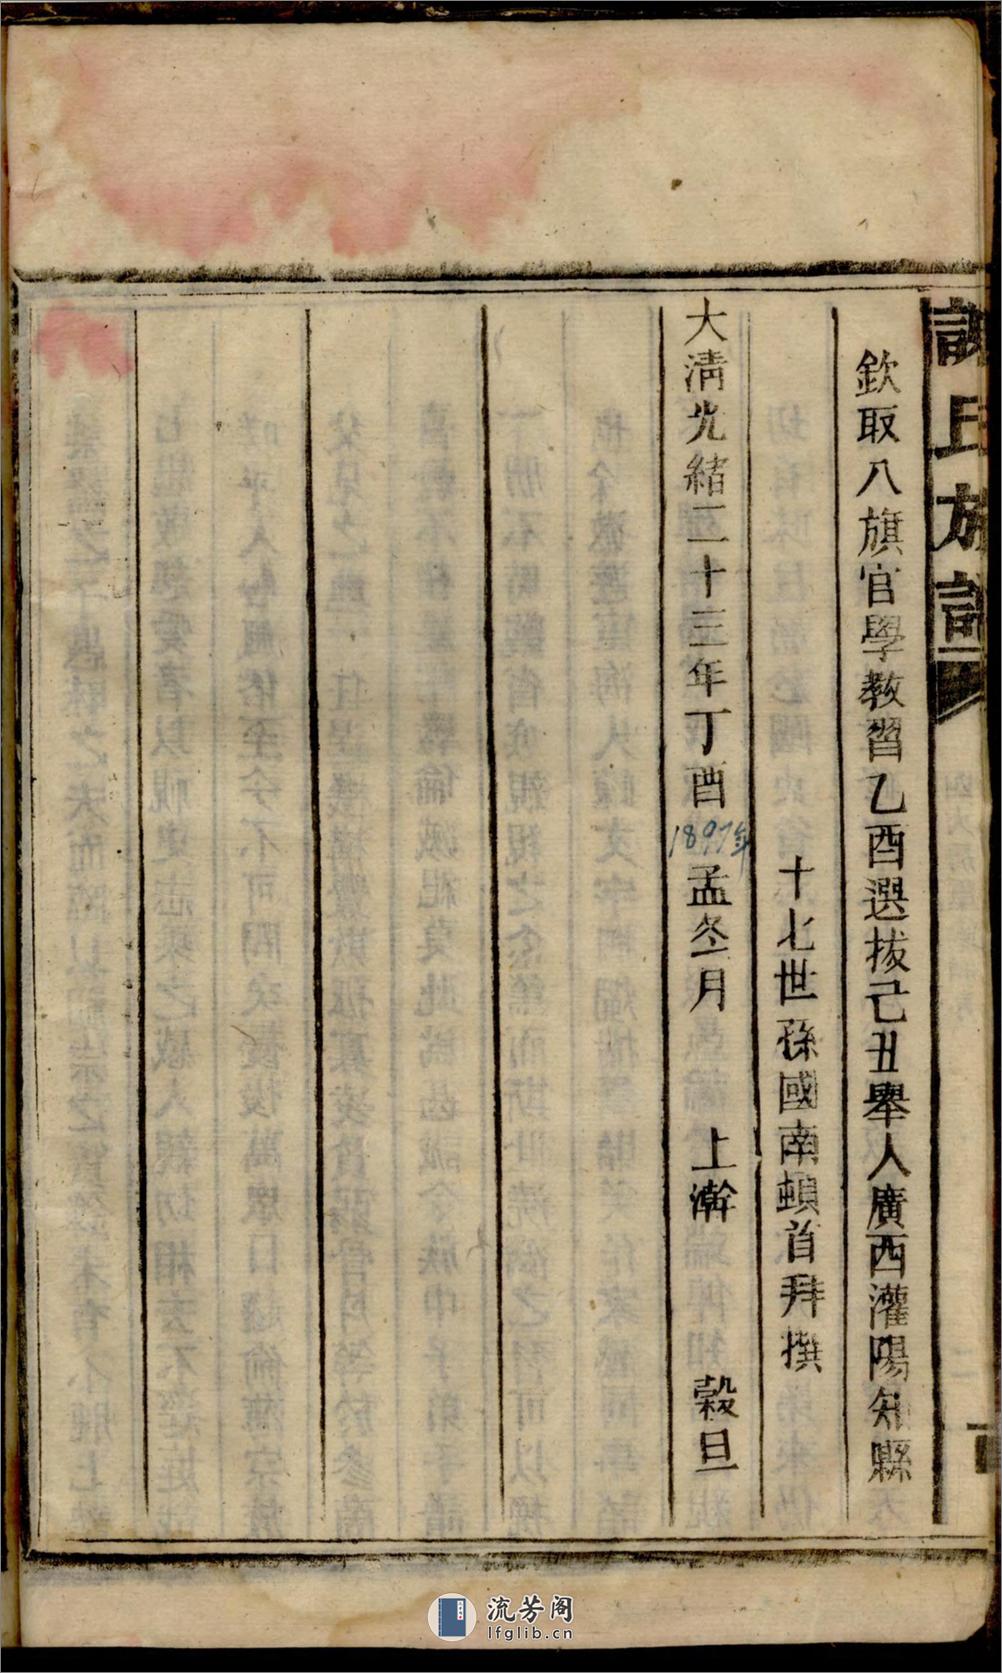 欽取八旗官學教習乙酉選拔己丑舉人廣西灌陽知縣
十七世孫國南頓首拜撰
大清光緒二十三年丁酉1897年孟冬月 上澣 穀旦
氏族譜
流芳阁
lfglib.cn